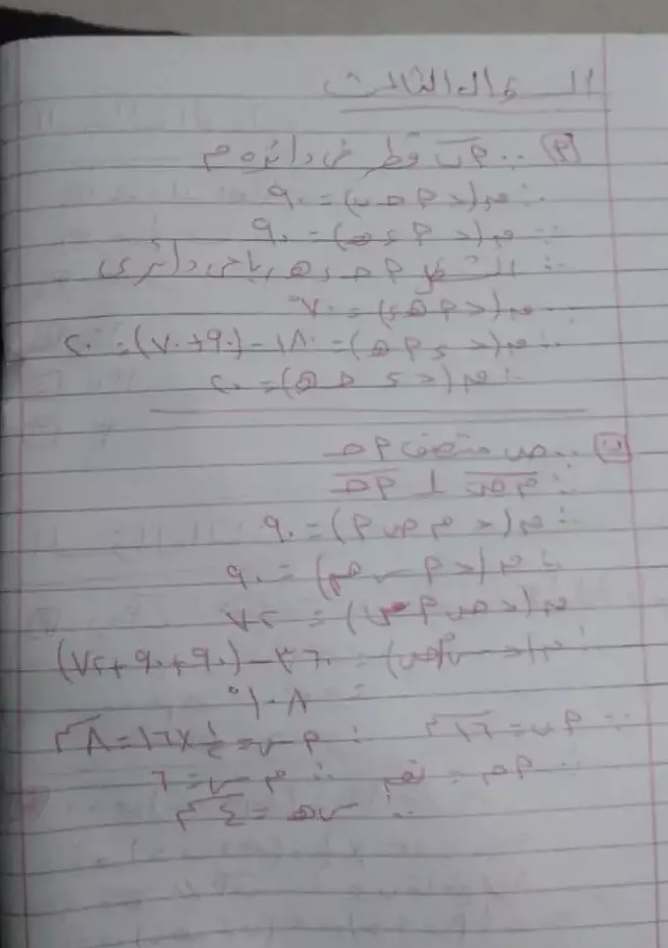 السؤال الثالث
(أ) ∵ أب قطر في دائرة م
∴ ق(< أ ح ب) = ٩٠
∵ ق(< أ د هـ) = ٩٠
∴ الشكل أ ح د هـ رباعي دائري
ق(< أ هـ د) = ٧٠°
∴ ق(< د أ هـ) = ١٨٠ - (٩٠+٧٠) = ٢٠
∴ ق(< د ح هـ) = ٢٠
(ب) ∵ ص منتصف أح
∴ م ص ⊥ أح
∴ ق(< م ص أ) = ٩٠
∵ ق(< أ س م) = ٩٠
ق(< ص أ س) = ٧٢
∴ ق(< س م ص) = ٣٦٠ - (٧٢+٩٠+٩٠)
= ١٠٨°
∵ أب = ١٦سم ∴ أ س = ½×١٦=٨سم
∵ أم = نق ∴ م س = ٦
∴ س هـ = ٤سم